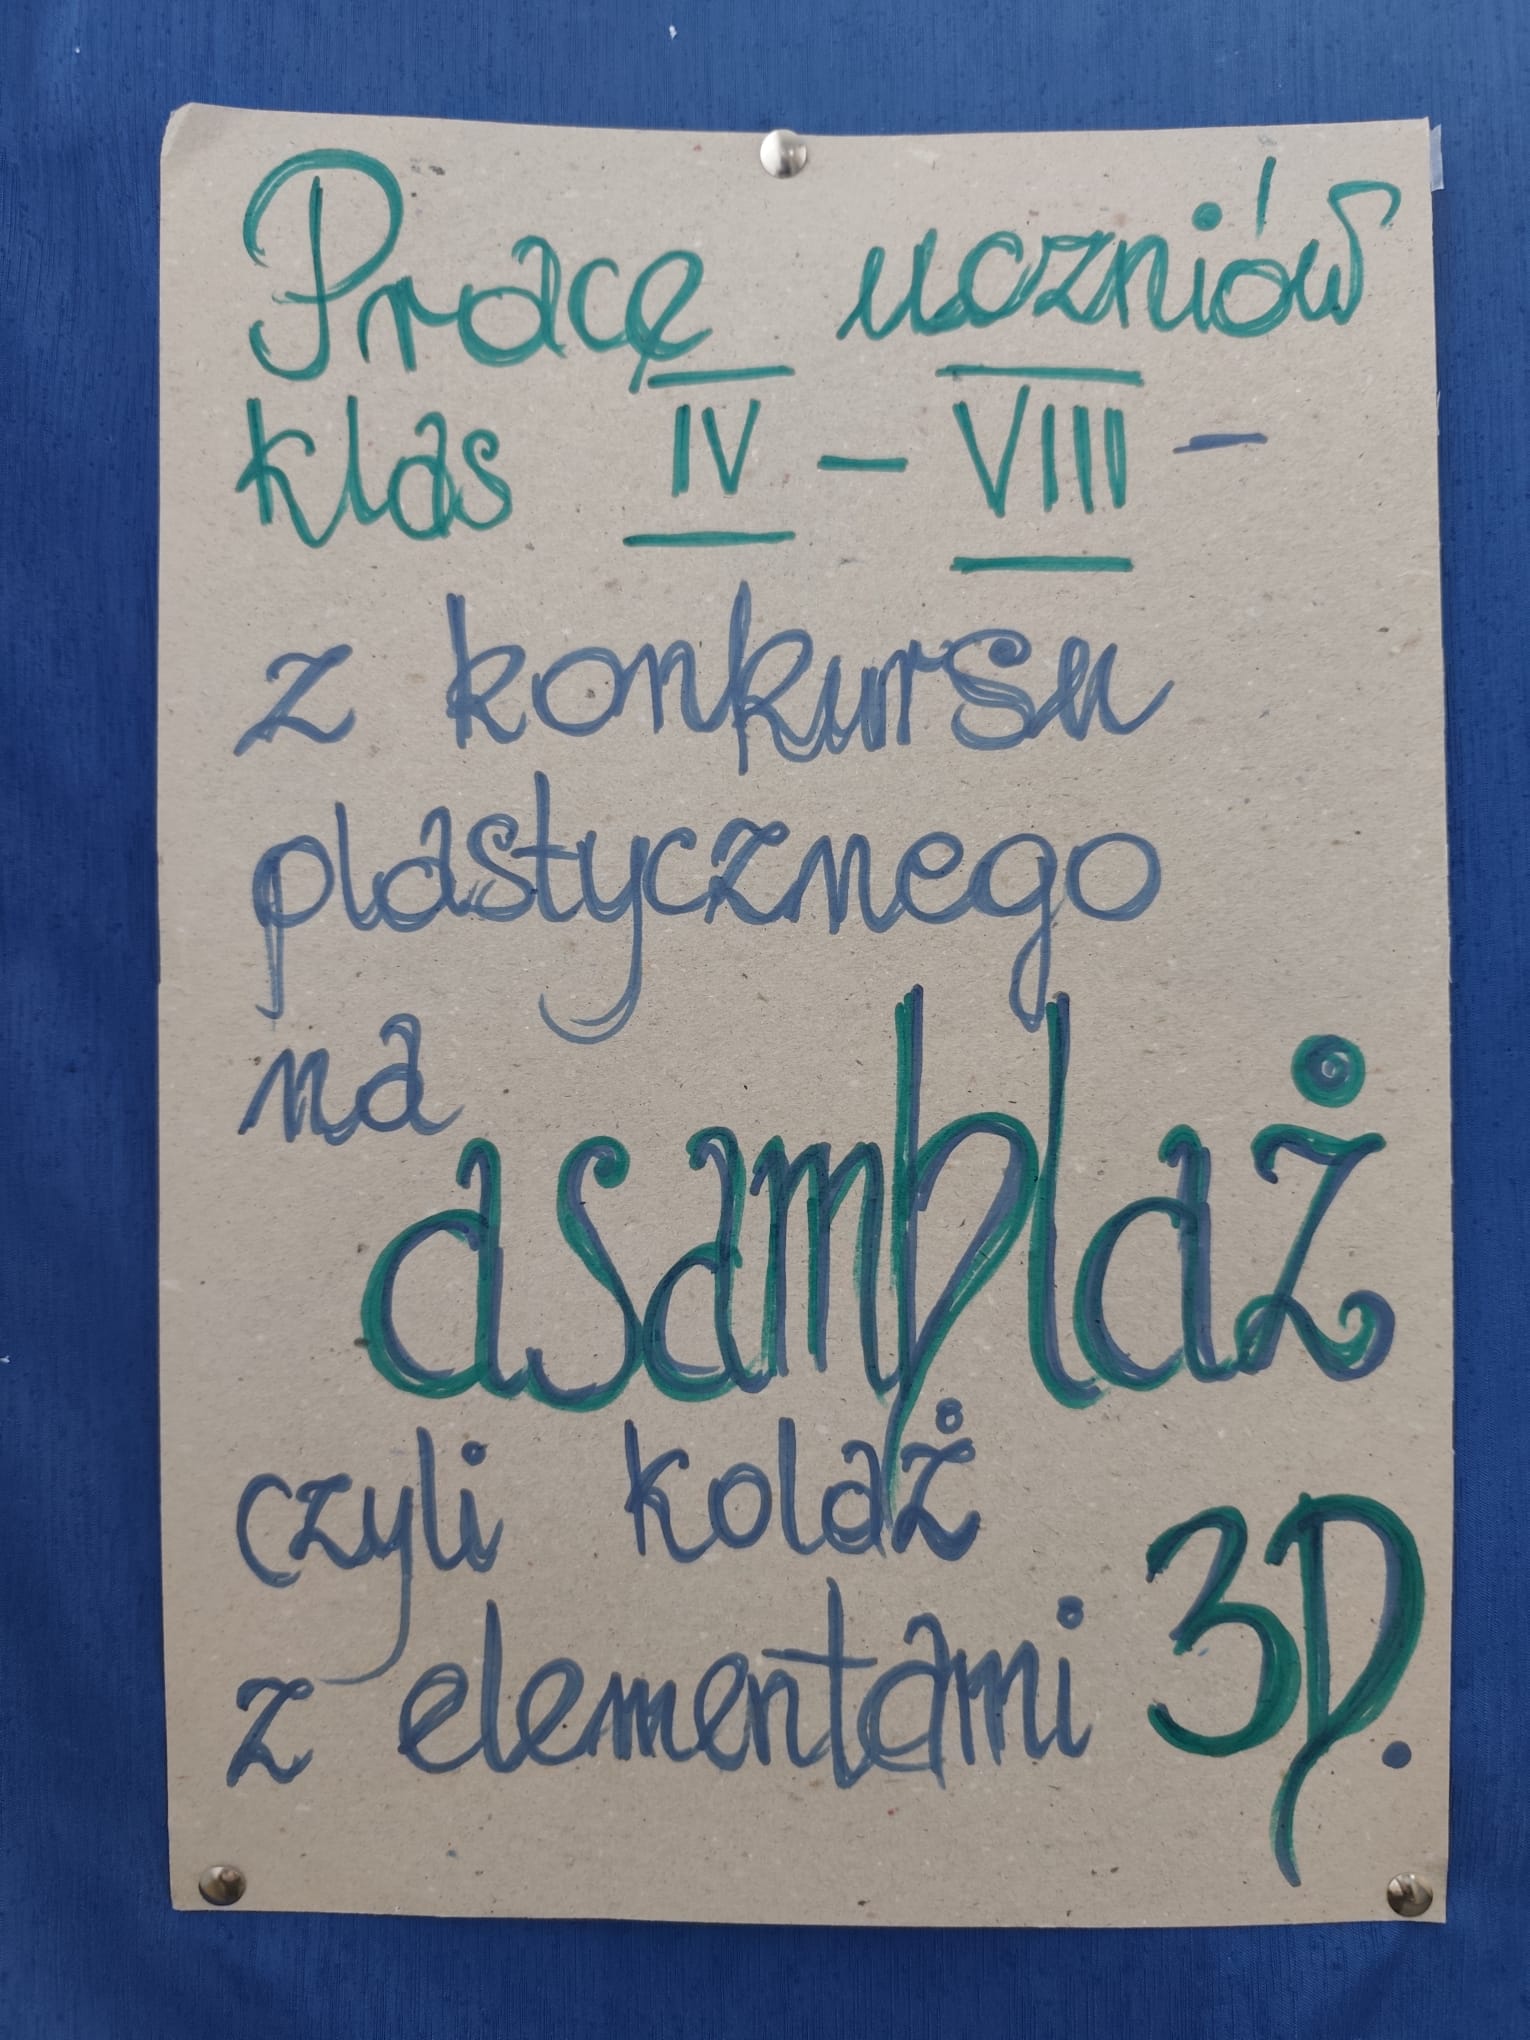 Prace uczniów
klas IV - VIII -
z konkursu
plastycznego
na
asamblaż
czyli kolaż
z elementami 3D.